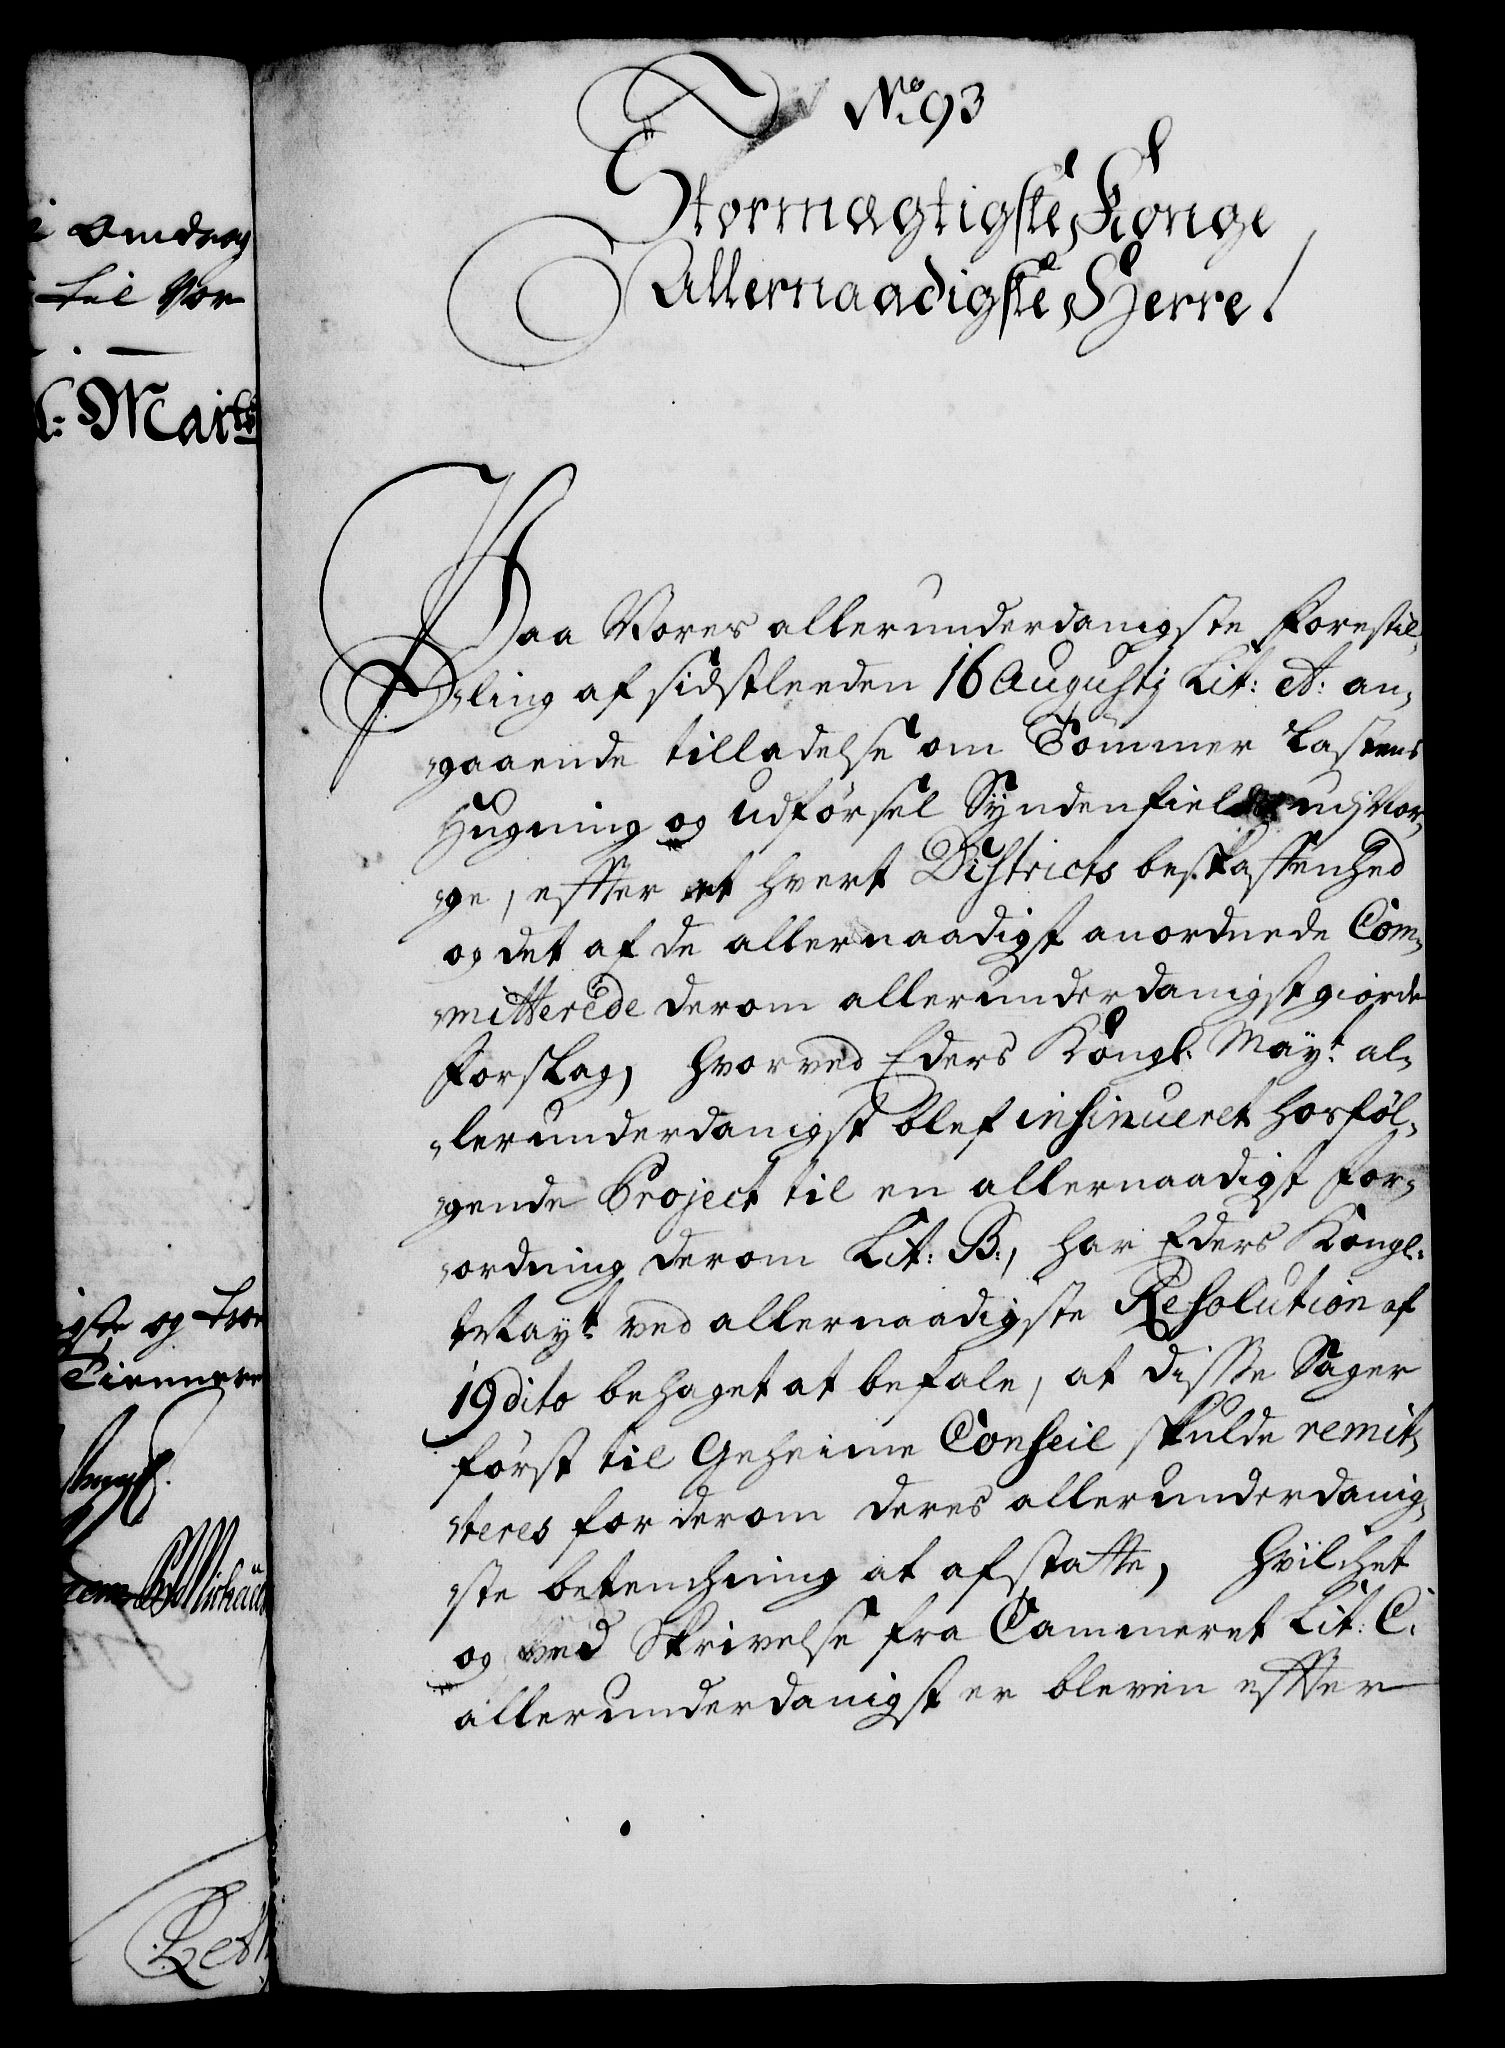 i Omdrag
til Nor
Marts
No. 93
Stormægtigste Konge
Allernaadigste Herre!
Paa Vores allerunderdanigste Forestil„
„ling af sidstleeden 16 Augustj Lit: A: an„
„gaaende tilladelse om Tømmer Lastens
Hugning og udførsel Syndenfields udj Nor„
„ge, effter et hvert Districts beskaffenhed
og det af de allernaadigst anordnede Com„
„mitterede derom allerunderdanigst giorde
forslag, hvorved Eders Kongl: Mayt: al„
„lerunderdanigst blef insinueret hosføl„
„gende Project til en allernaadigst for„
„ordning derom Lit: B:, har Eders Kongl:
Mayt: ved allernaadigste Resolution af
19 dito behaget at befale, at disse Sager
først til Geheime Conseil skulde remit„
„teres for derom deres allerunderdanig„
„ste betenchning at afstatte, hvilchet
og ved Skrivelse fra Cammeret Lit: C:
allerunderdanigst er bleven effter
igste og troe
Tiennere